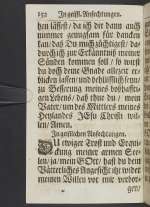 152 In geistl. Anfechtungen.
hen lässest / da ich dir dann auch
nimmer genugsam für dancken
kan / das du mich züchtigest / da-
durch ich zur Erkäntniß meiner
Sünden kommen soll / so wirst
du doch deine Gnade allezeit er-
blicken lassen / und behülfflich seyn /
zu Besserung meines bußferti-
gen Lebens / das thue du / mein
Vater / um des Mittlers meines
Heylandes JEsu Christi wil-
len / Amen.
In geistlichen Anfechtungen.
Du einiger Trost und Erqui-
ckung meiner armen See-
len / ja / mein GOtt / hast du dein
Väterliches Angesicht ihr wider
meinen Willen vor mir verbor-
gen /